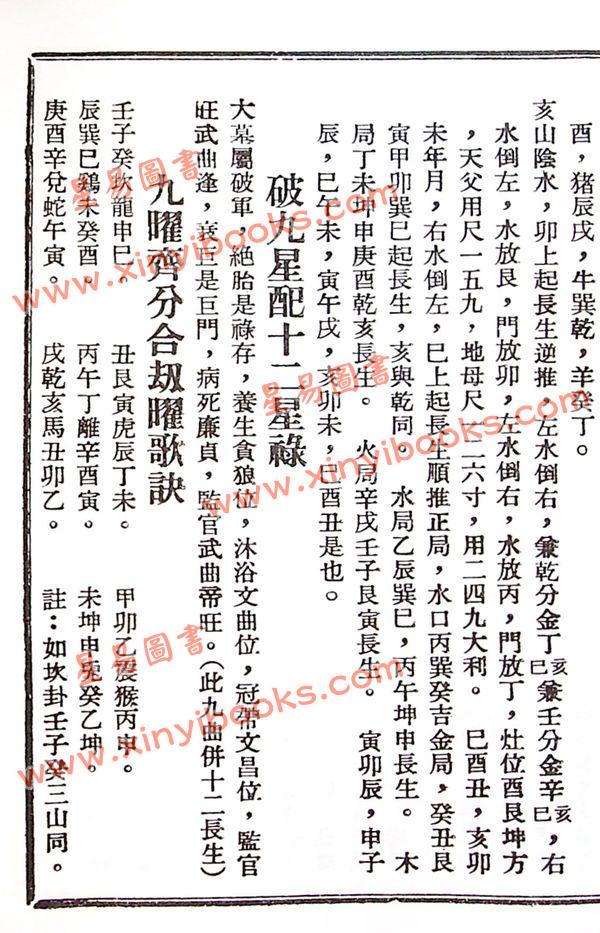 酉，猪辰戌，牛巽乾，羊癸丁。
亥山陰水，卯上起長生逆推，左水倒右，兼乾分金丁亥巳兼壬分金辛亥巳，右
水倒左，水放艮，門放卯，左水倒右，水放丙，門放丁，灶位酉艮坤方
，天父用尺一五九，地母尺一二六寸，用二四九大利。　巳酉丑，亥卯
未年月，右水倒左，巳上起長生順推正局，水口丙巽癸吉金局，癸丑艮
寅甲卯巽巳起長生，亥與乾同。　水局乙辰巽巳，丙午坤申長生。　木
局丁未坤申庚酉乾亥長生。　火局辛戌壬子艮寅長生。　寅卯辰，申子
辰，巳午未，寅午戌，亥卯未，巳酉丑是也。
破九星配十二星祿
大墓屬破軍，絕胎是祿存，養生貪狼位，沐浴文曲位，冠帶文昌位，監官
旺武曲逢，衰巨是巨門，病死廉貞，監官武曲帝旺。（此九曲併十二長生）
九曜齊分合刼曜歌訣
壬子癸坎龍申巳。　丑艮寅虎辰丁未。　甲卯乙震猴丙申。
辰巽巳鷄未癸酉。　丙午丁離辛酉寅。　未坤申兎癸乙坤。
庚酉辛兌蛇午寅。　戌乾亥馬丑卯乙。　註：如坎卦壬子癸三山同。
星易圖書
www.xinyibooks.com
星易圖書
www.xinyibooks.com
星易圖書
www.xinyibooks.com